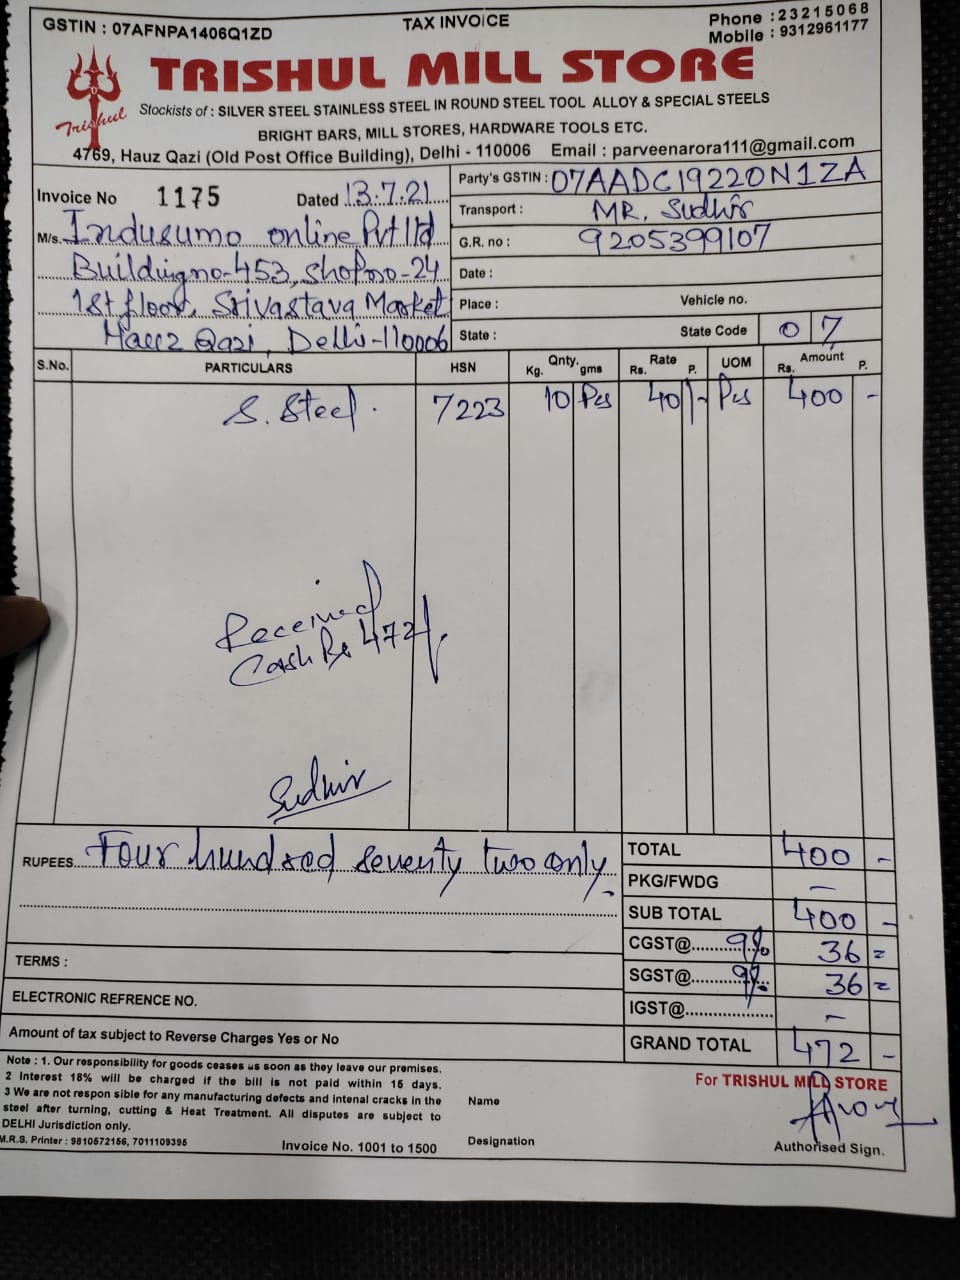 GSTIN : 07AFNPA1406Q1ZD
TAX INVOICE
Phone : 23215068
Mobile : 9312961177
Trishul
TRISHUL MILL STORE
Stockists of : SILVER STEEL STAINLESS STEEL IN ROUND STEEL TOOL ALLOY & SPECIAL STEELS
BRIGHT BARS, MILL STORES, HARDWARE TOOLS ETC.
4769, Hauz Qazi (Old Post Office Building), Delhi - 110006 Email : parveenarora111@gmail.com
Invoice No 1175 Dated 13.7.21
M/s. Indusumo online Pvt ltd
Building no-453, Shop no-24
1st floor, Srivastava Market
Hauz Qazi, Delhi-110006
Party's GSTIN : 07AADCI9220N1ZA
Transport : MR. Sudhir
G.R. no : 9205399107
Date :
Place : Vehicle no.
State : State Code 07
S.No. PARTICULARS HSN Qnty. Kg. gms Rate Rs. P. UOM Amount Rs. P.
S. Steel. 7223 10 Pcs 40/- Pcs 400 -
Received
Cash Rs 472/.
Sudhir
RUPEES Four hundred seventy two only.
TERMS :
ELECTRONIC REFRENCE NO.
Amount of tax subject to Reverse Charges Yes or No
TOTAL 400 -
PKG/FWDG -
SUB TOTAL 400 -
CGST@ 9% 36 =
SGST@ 9% 36 =
IGST@ -
GRAND TOTAL 472 -
Note : 1. Our responsibility for goods ceases us soon as they leave our premises.
2 Interest 18% will be charged if the bill is not paid within 15 days.
3 We are not respon sible for any manufacturing defects and intenal cracks in the
steel after turning, cutting & Heat Treatment. All disputes are subject to
DELHI Jurisdiction only.
M.R.S. Printer : 9810572156, 7011109395
Invoice No. 1001 to 1500
Name
Designation
For TRISHUL MILL STORE
Authorised Sign.